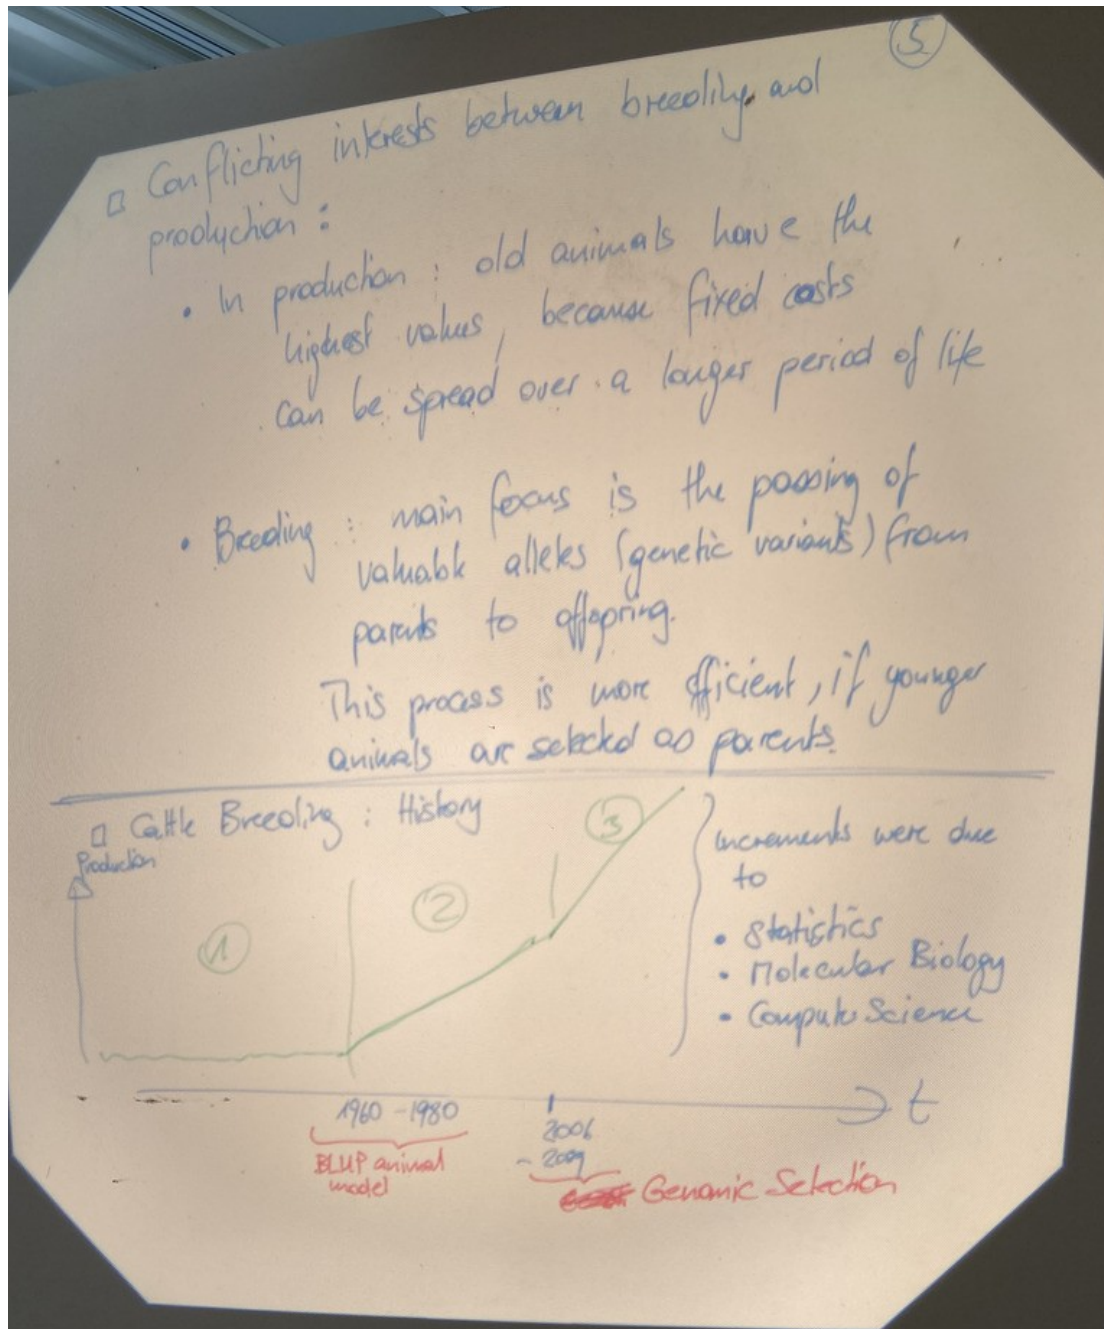 5
Conflicting interests between breeding and
production :
• In production : old animals have the
highest values, because fixed costs
can be spread over a longer period of life
• Breeding : main focus is the passing of
valuable alleles (genetic variants) from
parents to offspring.
This process is more efficient, if younger
animals are selected as parents.
Cattle Breeding : History
Production
1
2
3
Increments were due
to
• Statistics
• Molecular Biology
• Computer Science
t
1960 - 1980
BLUP animal
model
2006
- 2009
Genomic Selection